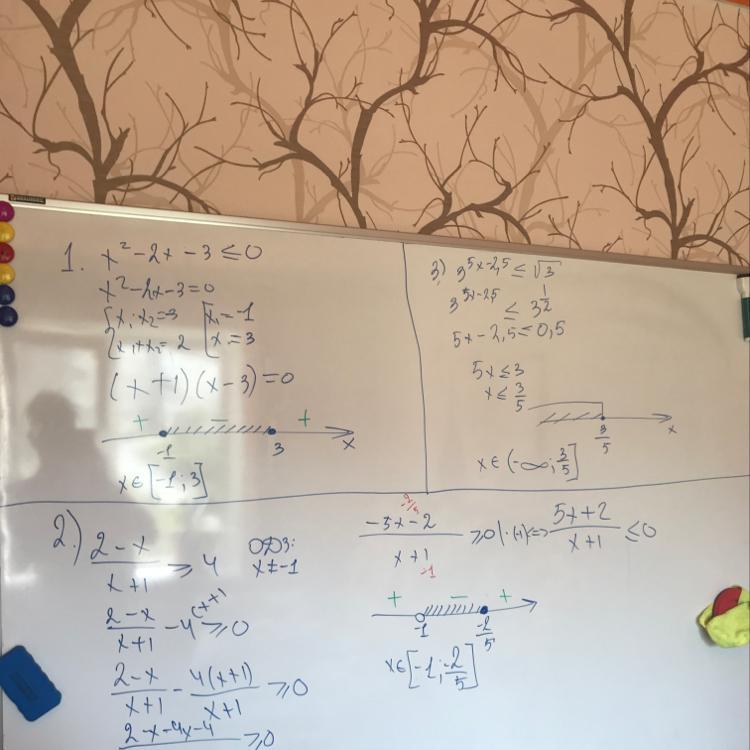 1. x² - 2x - 3 ≤ 0
x² - 2x - 3 = 0
{x₁ x₂ = -3 [x₁ = -1
{x₁ + x₂ = 2 [x = 3
(x+1)(x-3) = 0
+ - +
-1 3 x
x ∈ [-1; 3]
3) 3^(5x-2,5) ≤ √3
3^(5x-2,5) ≤ 3^(1/2)
5x - 2,5 = 0,5
5x ≤ 3
x ≤ 3/5
3/5 x
x ∈ (-∞; 3/5]
2) (2-x)/(x+1) ≥ 4 ОДЗ:
x ≠ -1
(2-x)/(x+1) - 4^(x+1) ≥ 0
(2-x)/(x+1) - 4(x+1)/(x+1) ≥ 0
2-x-4x-4 ≥ 0
(-5x-2)/(x+1) ≥ 0 | ·(-1) <=> (5x+2)/(x+1) ≤ 0
-1
+ - +
-1 -2/5
x ∈ [-1; -2/5]